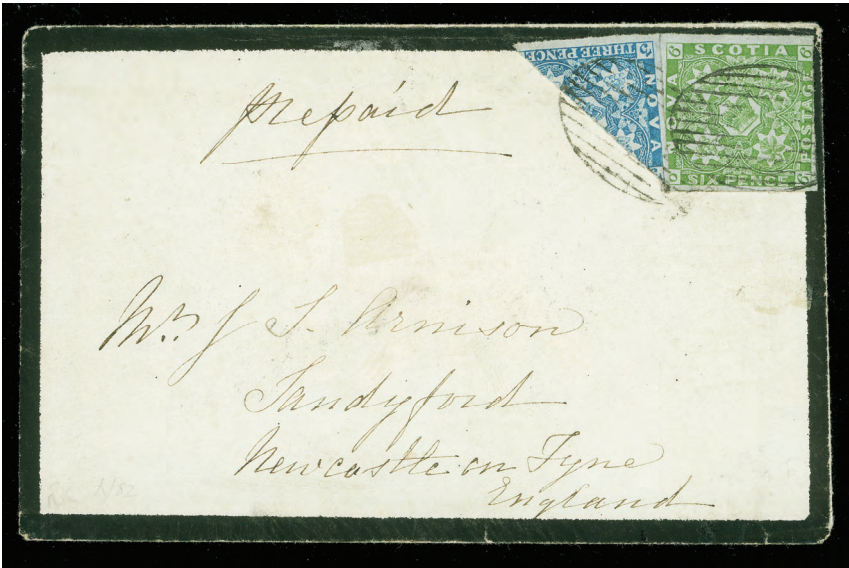 THREE PENCE
NOVA
SCOTIA
POSTAGE
SIX PENCE
6 6 6 6
Prepaid
Mrs. J S. Arnison
Sandyford
Newcastle on Tyne
England